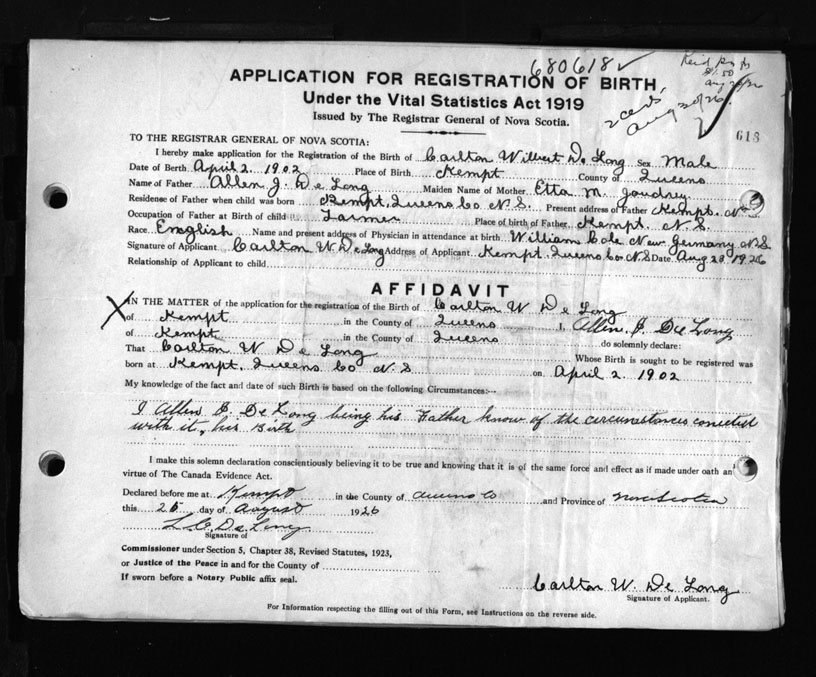 680618 ✓
APPLICATION FOR REGISTRATION OF BIRTH
Under the Vital Statistics Act 1919
Issued by The Registrar General of Nova Scotia.
$1.50
2 certs
Aug 20/26
618
TO THE REGISTRAR GENERAL OF NOVA SCOTIA:
I hereby make application for the Registration of the Birth of Carlton Wilbert De Long Sex Male
Date of Birth April 2. 1902 Place of Birth Kempt County of Queens
Name of Father Allen J. De Long Maiden Name of Mother Etta M. Joudrey
Residence of Father when child was born Kempt, Queens Co N.S. Present address of Father Kempt. N.S.
Occupation of Father at Birth of child Farmer Place of birth of Father Kempt. N.S.
Race English Name and present address of Physician in attendance at birth William Cole New Germany N.S
Signature of Applicant Carlton W. De Long Address of Applicant Kempt, Queens Co. N.S Date Aug 23 1926
Relationship of Applicant to child
AFFIDAVIT
X
IN THE MATTER of the application for the registration of the Birth of Carlton W De Long
of Kempt in the County of Queens I, Allen J. De Long
of Kempt in the County of Queens do solemnly declare:
That Carlton W De Long Whose Birth is sought to be registered was
born at Kempt, Queens Co N.S. on April 2. 1902
My knowledge of the fact and date of such Birth is based on the following Circumstances:—
I Allen J. De Long being his Father know of the circumstances conected
with it, his Birth
I make this solemn declaration conscientiously believing it to be true and knowing that it is of the same force and effect as if made under oath an
virtue of The Canada Evidence Act.
Declared before me at Kempt in the County of Queens Co and Province of Nova Scotia
this 25 day of August 1926
L. C. De Long
Signature of
Commissioner under Section 5, Chapter 38, Revised Statutes, 1923,
or Justice of the Peace in and for the County of
If sworn before a Notary Public affix seal.
Carlton W. De Long
Signature of Applicant.
For Information respecting the filling out of this Form, see Instructions on the reverse side.